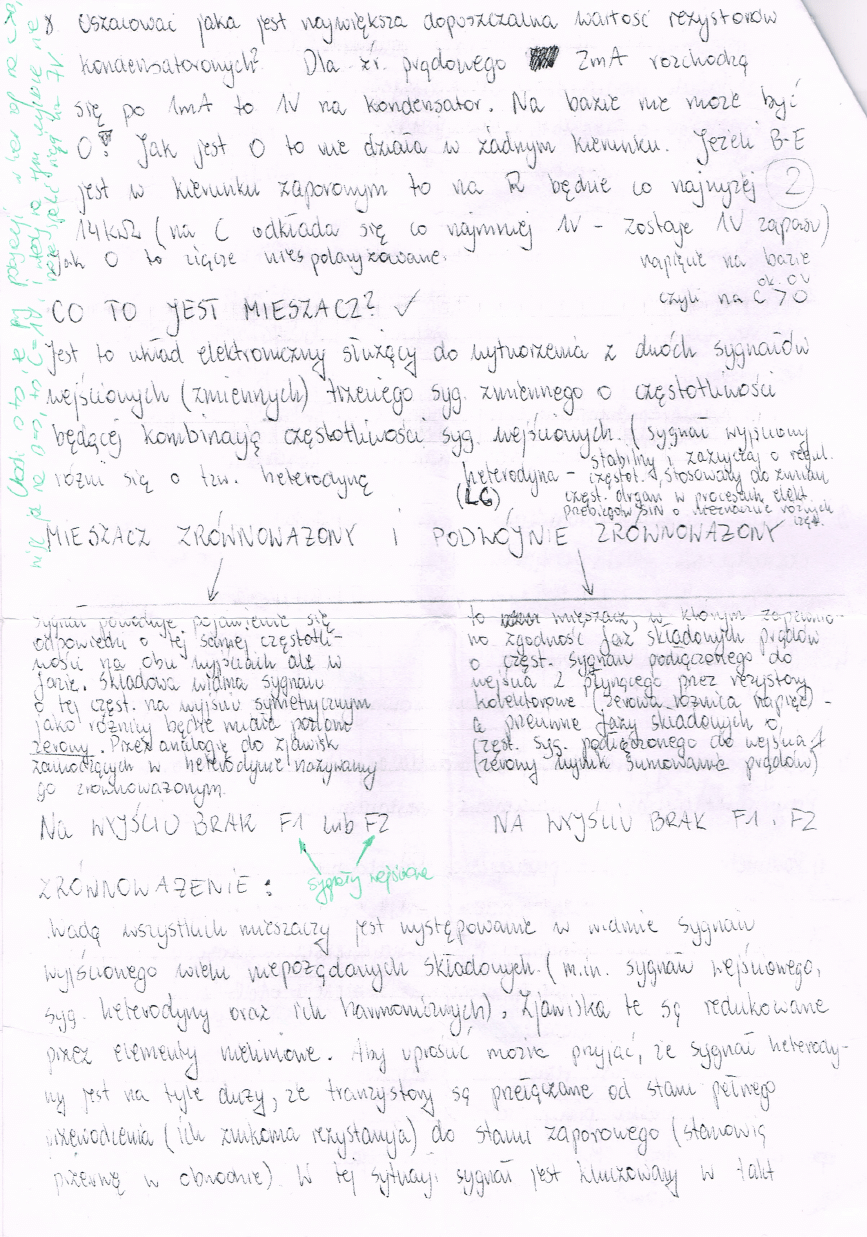 Oszacować jaka jest największa dopuszczalna wartość rezystorów
kondensatoronych? Dla źr. prądowego 2mA rozchodzą
się po 1mA to 1V na kondensator. Na bazie nie może być
0! Jak jest 0 to nie działa w żadnym kierunku. Jeżeli B-E
jest w kierunku zaporowym to na R będzie co najwyżej 2
14kΩ (na C odkłada się co najmniej 1V - zostaje 1V zapasu)
jak 0 to złącze niespolaryzowane.
napięcie na bazie
ok. 0V
czyli na C > 0
CO TO JEST MIESZACZ? ✓
Jest to układ elektroniczny służący do wytworzenia z dwóch sygnałów
wejściowych (zmiennych) trzeciego syg. zmiennego o częstotliwości
będącej kombinacją częstotliwości syg. wejściowych. (sygnał wyjściowy
różni się o tzw. heterodynę
heterodyna - stabilny i zazwyczaj o regul.
(LG) częstot. stosowany do zmian
częst. drgań w procesach elekt.
MIESZACZ ZRÓWNOWAŻONY i PODWÓJNIE ZRÓWNOWAŻONY
sygnał powoduje pojawienie się
odpowiedzi o tej samej częstotli-
wości na obu wyjściach ale w
fazie. Składowa widma sygnału
o tej częst. na wyjściu symetrycznym
jako różnicy będzie miała poziom
zerowy. Przez analogię do zjawisk
zachodzących w heterodynie nazywamy
go zrównoważonym.
NA WYJŚCIU BRAK F1 lub F2
sygnały wejściowe
to mieszacz, w którym zapewnio-
no zgodność faz składowych prądów
o częst. sygnału podłączonego do
wejścia 2 płynącego przez rezystory
kolektorowe (zerowa różnica napięć) -
a przeciwne fazy składowych o
częst. syg. podłączonego do wejścia 1
(zerowy wynik sumowania prądów)
NA WYJŚCIU BRAK F1 i F2
ZRÓWNOWAŻENIE:
Wadą wszystkich mieszaczy jest występowanie w widmie sygnału
wyjściowego wielu niepożądanych składowych. (m.in. sygnału wejściowego,
syg. heterodyny oraz ich harmonicznych). Zjawiska te są redukowane
przez elementy nieliniowe. Aby uprościć można przyjąć, że sygnał heterody-
ny jest na tyle duży, że tranzystory są przełączane od stanu pełnego
przewodzenia (ich znikoma rezystancja) do stanu zaporowego (stanowią
przerwę w obwodzie). W tej sytuacji sygnał jest kluczowany w takt